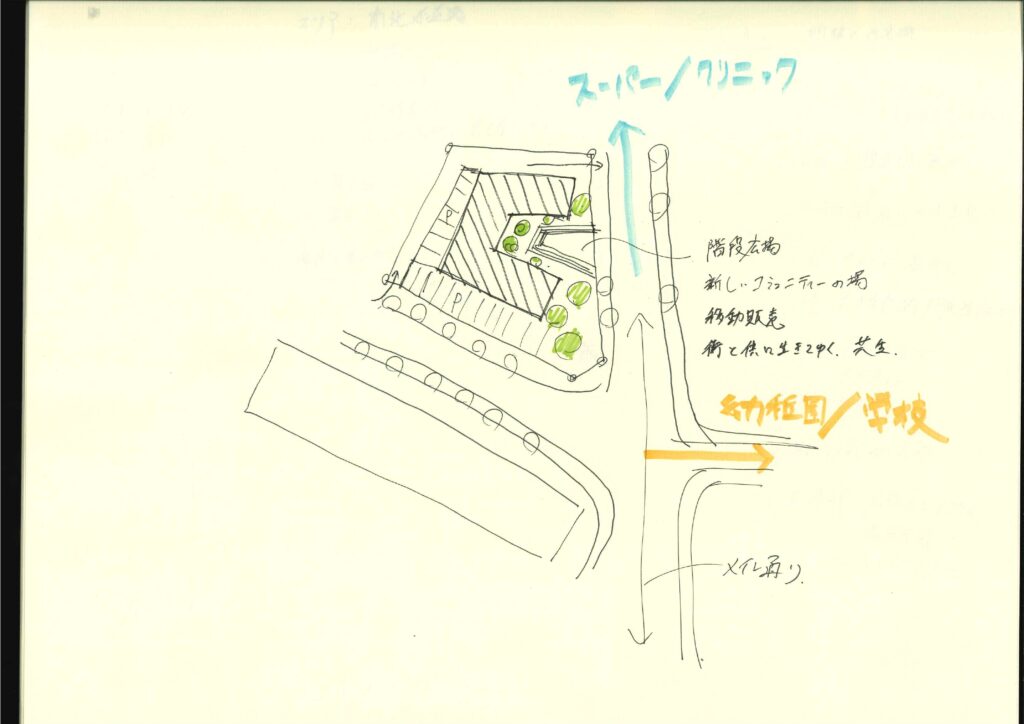 スーパー/クリニック
P
P
階段広場
新しいコミュニティーの場
移動販売
街と供に生きてゆく、芝生.
幼稚園/学校
メイン通り